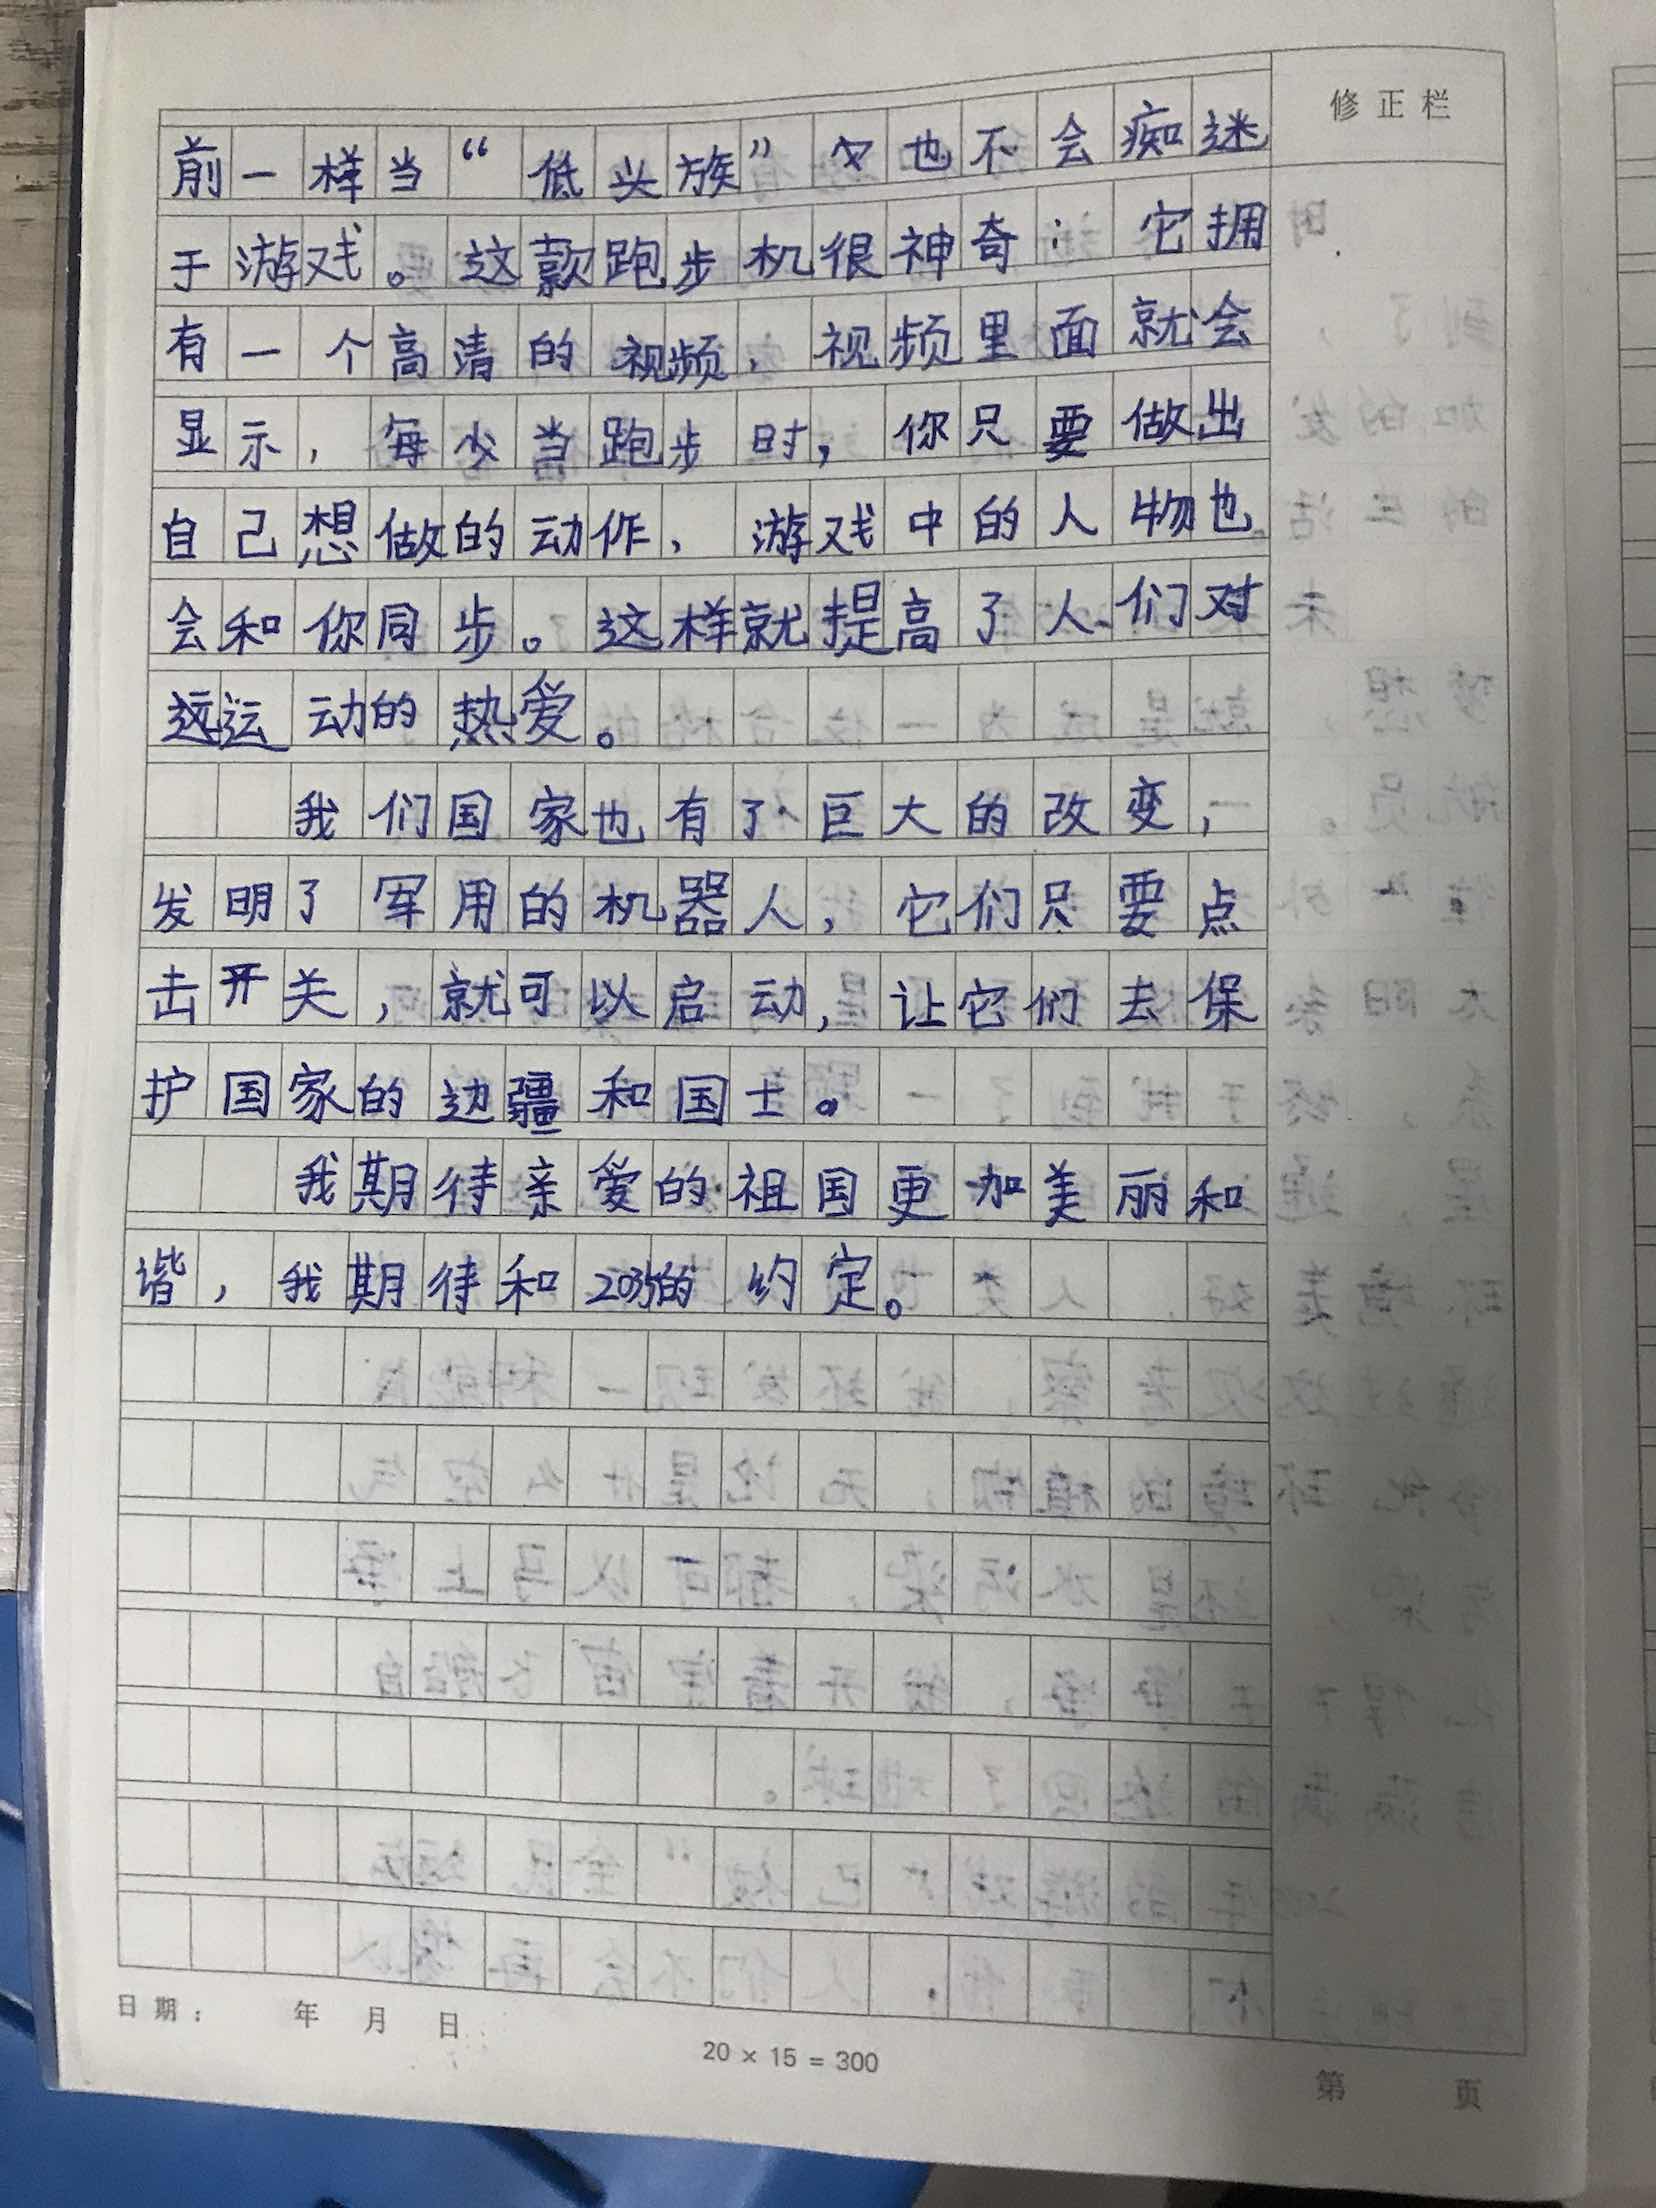 修正栏
前一样当“低头族”也不会痴迷
于游戏。这款跑步机很神奇：它拥
有一个高清的视频，视频里面就会
显示，每当跑步时，你只要做出
自己想做的动作，游戏中的人物也
会和你同步。这样就提高了人们对
运动的热爱。
我们国家也有了巨大的改变，
发明了军用的机器人，它们只要点
击开关，就可以启动，让它们去保
护国家的边疆和国土。
我期待亲爱的祖国更加美丽和
谐，我期待和2035的约定。
日期： 年 月 日
20 × 15 = 300
第 页